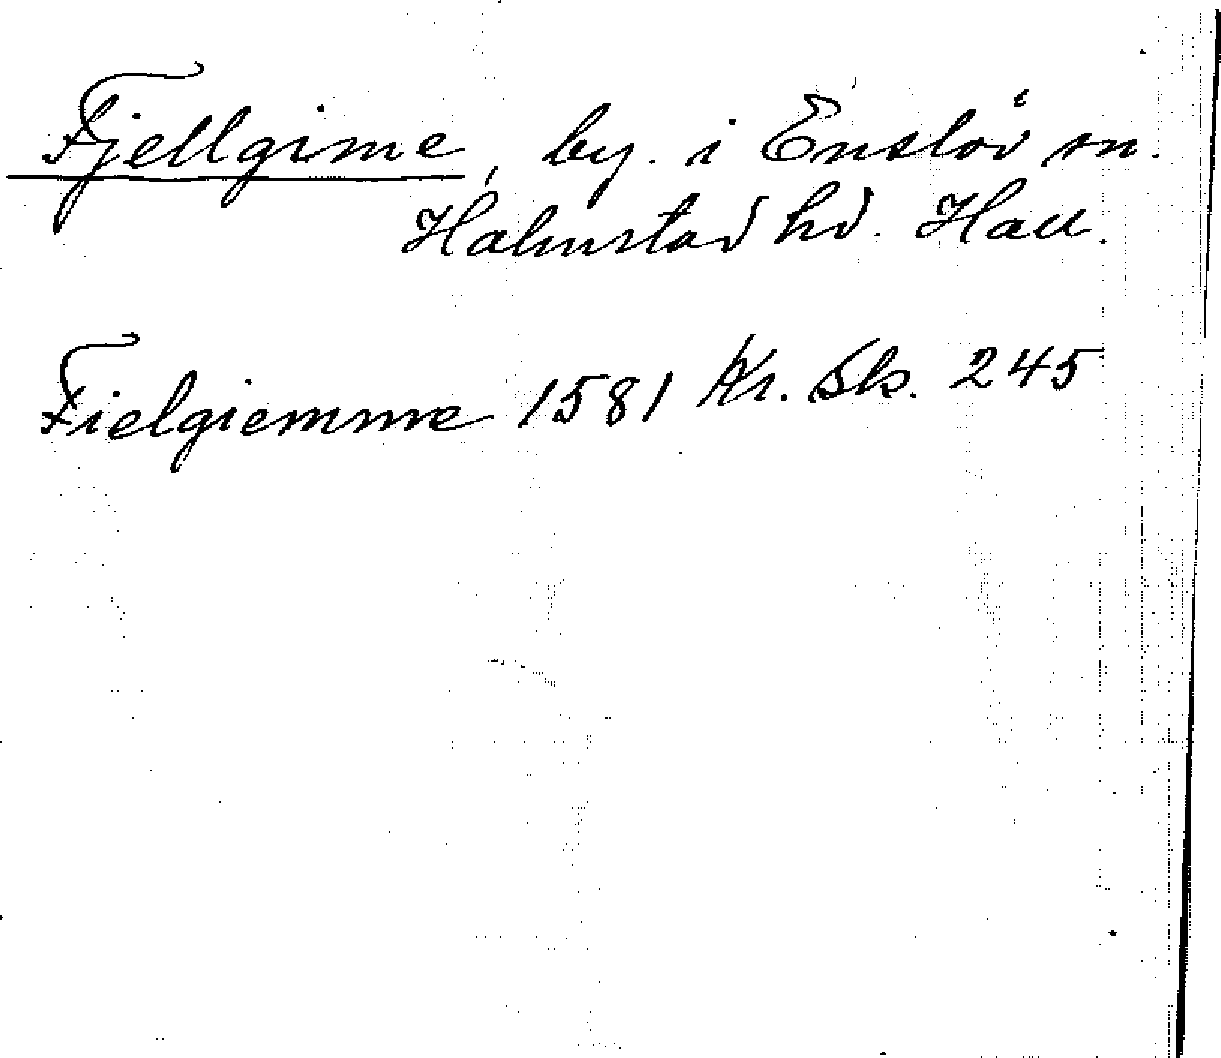 Fjellgime, by. i Enslöv sn.
Halmstad hd. Hall.
Fielgiemme 1581 Kr. Sk. 245